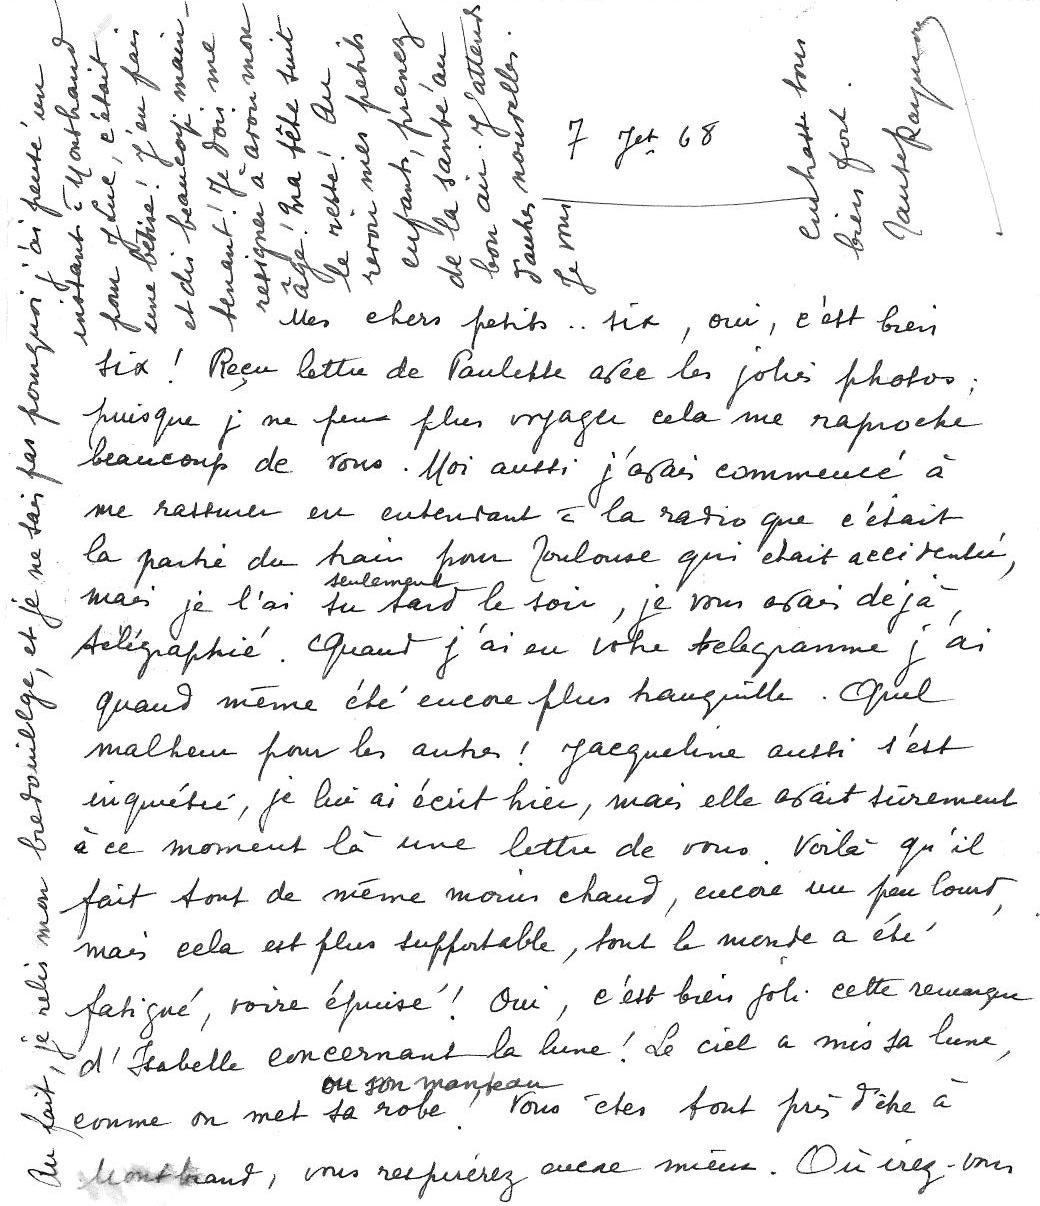 7 Jet 68
Mes chers petits .. six, oui, c'est bien
six ! Reçu lettre de Paulette avec les jolies photos ;
puisque j ne peux plus voyager cela me raproche
beaucoup de vous. Moi aussi j'avais commencé à
me rassurer en entendant à la radio que c'était
la partie du train pour Toulouse qui était accidentée,
mais je l'ai su tard seulement le soir, je vous avais déjà
télégraphié. Quand j'ai eu votre telegramme j'ai
quand même été encore plus tranquille. Quel
malheur pour les autres ! Jacqueline aussi s'est
inquiétée, je lui ai écrit hier, mais elle avait sûrement
à ce moment là une lettre de vous. Voilà qu'il
fait tout de même moins chaud, encore un peu lourd,
mais cela est plus supportable, tout le monde a été
fatigué, voire épuisé ! Oui, c'est bien joli cette remarque
d'Isabelle concernant la lune ! Le ciel a mis sa lune,
comme on met sa robe ou son manteau ! Vous êtes tout près d'être à
Montbrand, vous respirerez encore mieux. Où irez-vous
Au fait, je relis mon bredouillge, et je ne sais pas pourquoi j'ai pensé un
instant à Montbrand
pour J Luc, c'était
une bêtise ! J'en fais
et dis beaucoup main-
tenant ! Je dois me
resigner à avoir mon
âge ! Ma tête suit
le reste ! Au
revoir mes petits
enfants, prenez
de la santé au
bon air. J'attends
d'autres nouvelles.
Je vous
embrasse tous
bien fort.